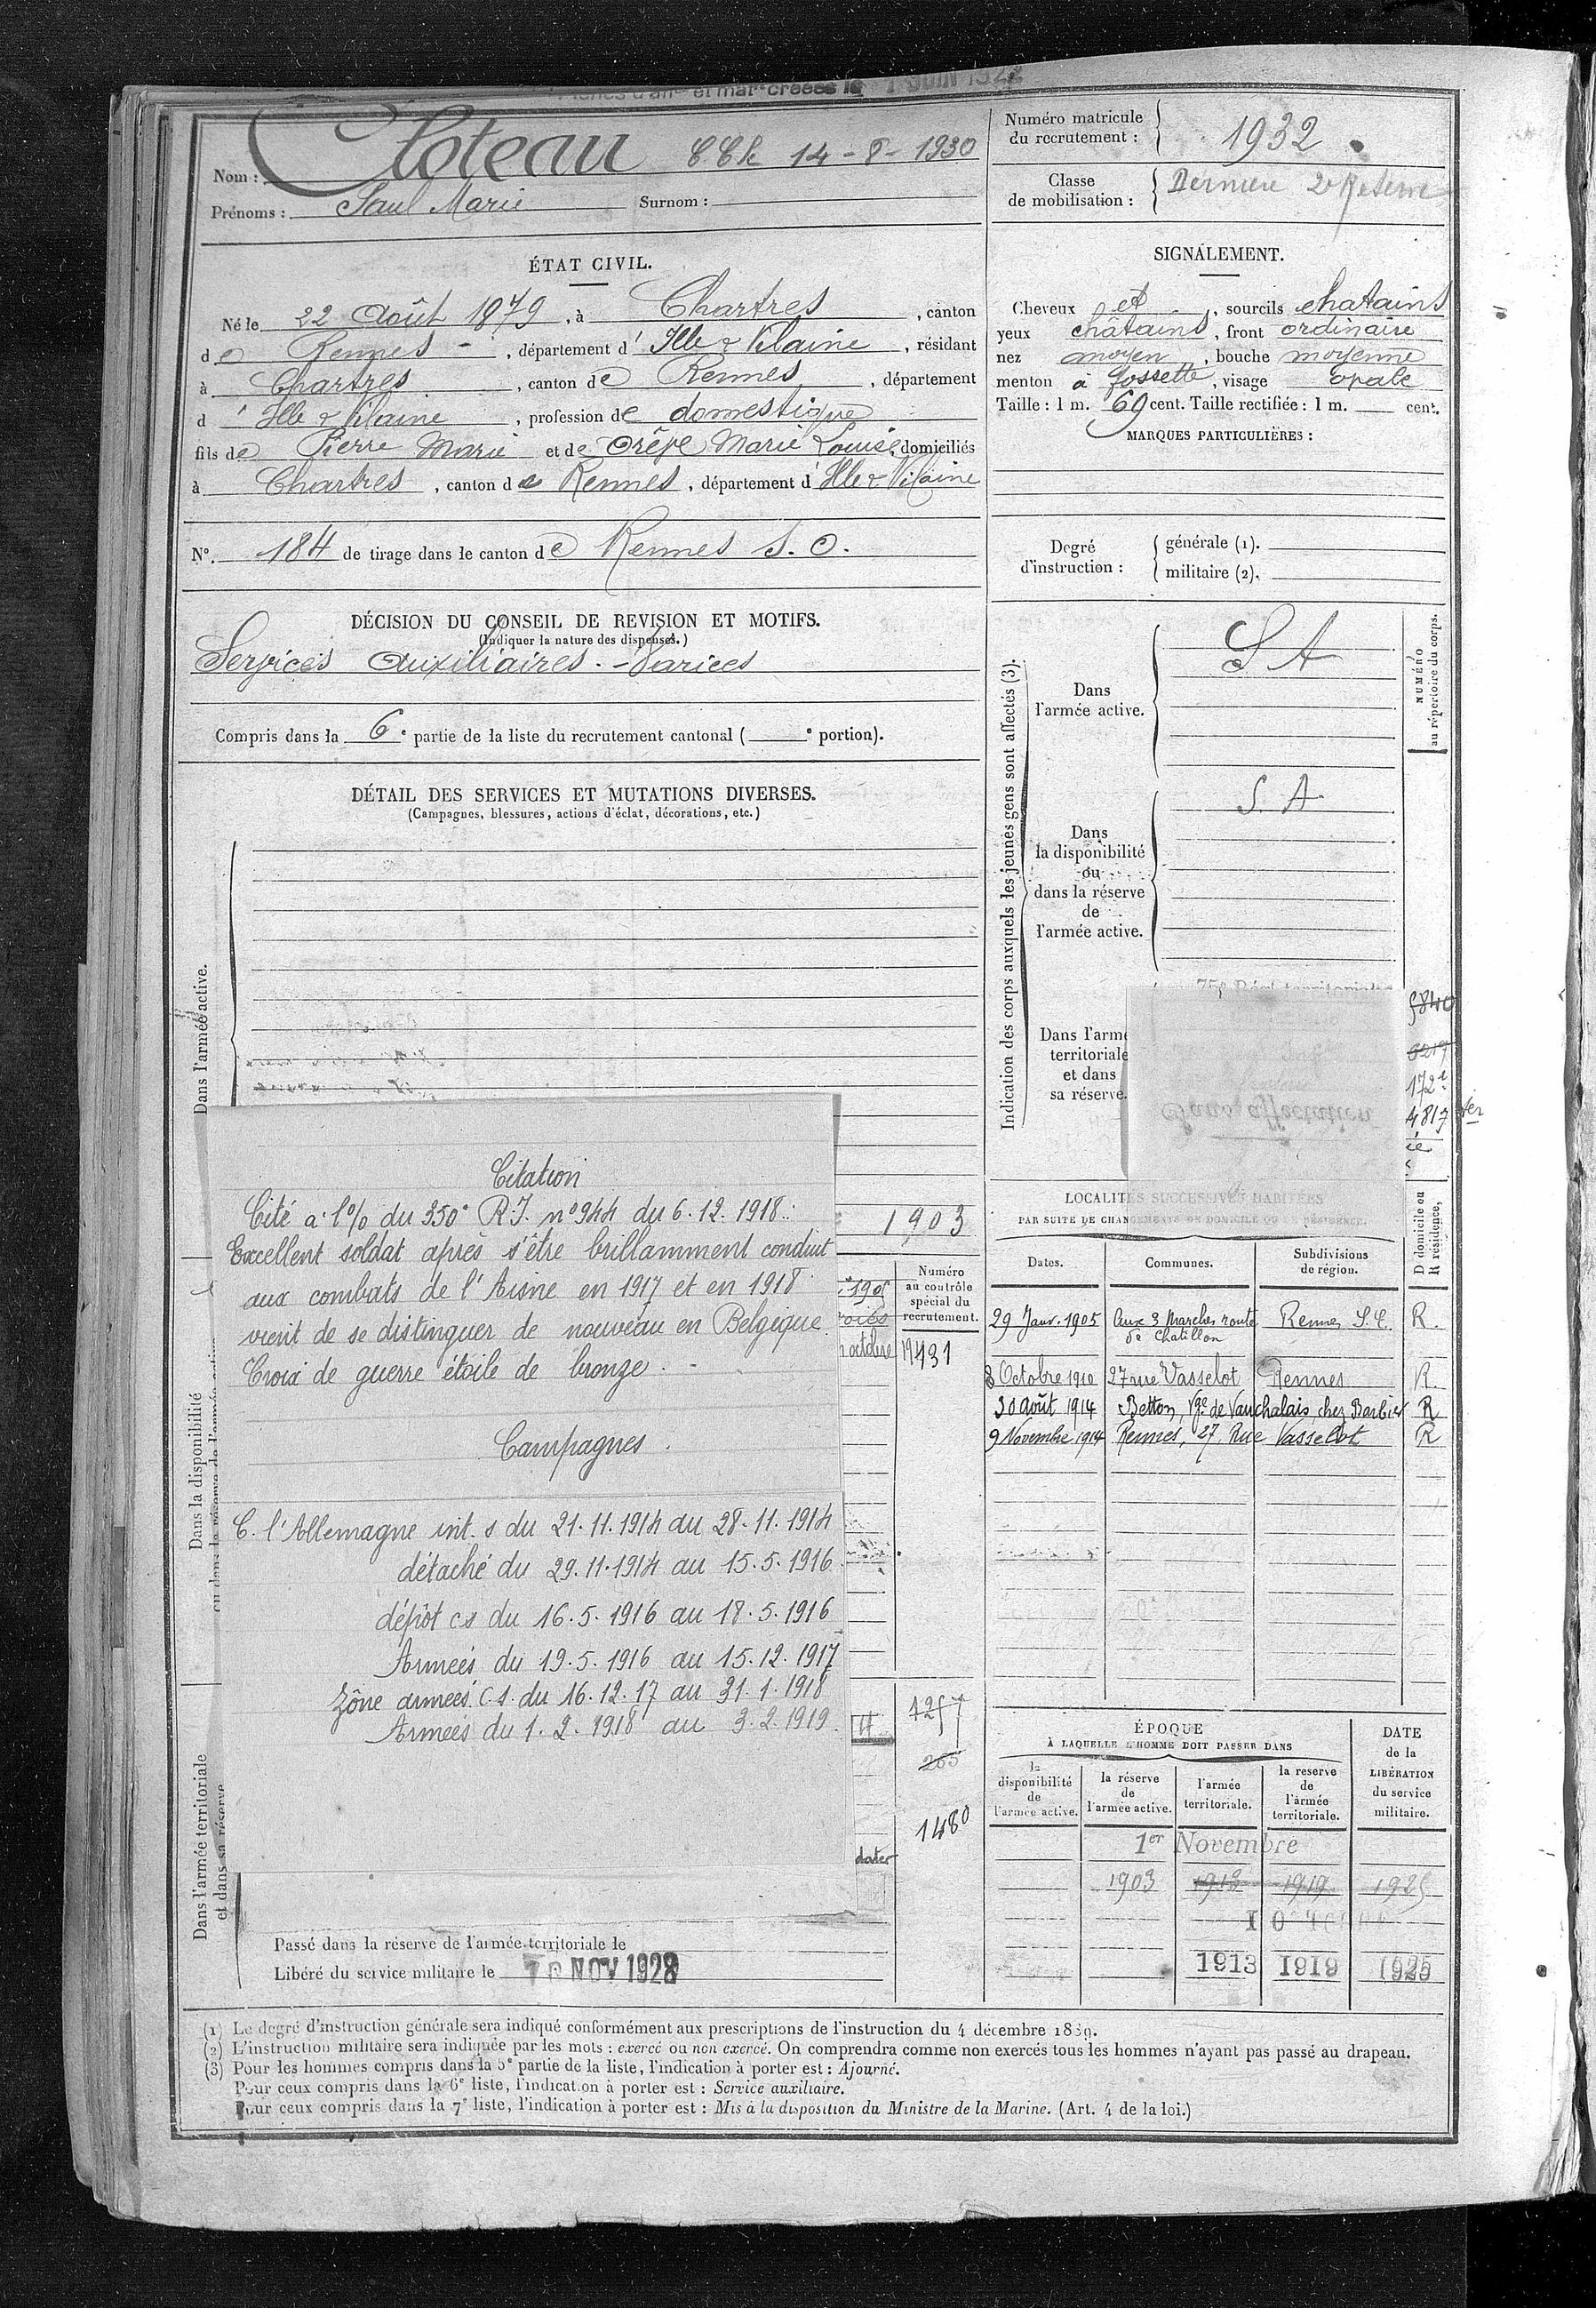 Nom : Cloteau C.Ch 14-8-1930
Prénoms : Paul Marie Surnom :
Numéro matricule
du recrutement : 1932
Classe
de mobilisation : Dernière 2e Réserve
ÉTAT CIVIL.
Né le 22 Août 1879, à Chartres, canton
de Rennes, département d'Ille & Vilaine, résidant
à Chartres, canton de Rennes, département
d'Ille & Vilaine, profession de domestique
fils de Pierre Marie et de Orêve Marie Louise, domiciliés
à Chartres, canton de Rennes, département d'Ille & Vilaine
N° 184 de tirage dans le canton de Rennes S.O.
SIGNALEMENT.
Cheveux et, sourcils chatains
yeux châtains, front ordinaire
nez moyen, bouche moyenne
menton à fossette, visage ovale
Taille : 1 m. 69 cent. Taille rectifiée : 1 m. cent.
MARQUES PARTICULIÈRES :
Degré
d'instruction :
générale (1).
militaire (2).
DÉCISION DU CONSEIL DE REVISION ET MOTIFS.
(Indiquer la nature des dispenses.)
Services Auxiliaires. - Varices
Compris dans la 6e partie de la liste du recrutement cantonal ( e portion).
DÉTAIL DES SERVICES ET MUTATIONS DIVERSES.
(Campagnes, blessures, actions d'éclat, décorations, etc.)
Dans l'armée active.
1903
Citation
Cité à l'o/o du 350e R.I. n° 944 du 6.12.1918 :
Excellent soldat après s'être brillamment conduit
aux combats de l'Aisne en 1917 et en 1918
vient de se distinguer de nouveau en Belgique.
Croix de guerre étoile de bronze. -
Campagnes.
C. l'Allemagne int. s du 21.11.1914 au 28.11.1914
détaché du 29.11.1914 au 15.5.1916
dépôt cs du 16.5.1916 au 18.5.1916
Armées du 19.5.1916 au 15.12.1917
Zône armées C.S. du 16.12.17 au 31.1.1918
Armées du 1.2.1918 au 3.2.1919.
Dans la disponibilité
Numéro
au contrôle
spécial du
recrutement.
octobre 19431
4257
265
1480
dater
Dans l'armée territoriale
et dans sa réserve
Passé dans la réserve de l'armée territoriale le
Libéré du service militaire le 10 NOV 1928
Indication des corps auxquels les jeunes gens sont affectés (3).
NUMÉRO
au répertoire du corps.
Dans
l'armée active.
S A
Dans
la disponibilité
ou
dans la réserve
de
l'armée active.
S. A.
Dans l'armé
territoriale
et dans
sa réserve.
Sans affectation
5840
6219
172e
4817 ter
LOCALITÉS SUCCESSIVES HABITÉES
PAR SUITE DE CHANGEMENTS DE DOMICILE OU DE RÉSIDENCE.
D domicile ou
R résidence.
Dates. Communes. Subdivisions
de région.
29 Janv. 1905 Aux 3 Marches route Rennes S.E. R.
de Chatillon
8 Octobre 1910 27 rue Vasselot Rennes R.
30 août 1914 Betton, Vge de Vauchalais, chez Barbier R
9 Novembre 1914 Rennes, 27, Rue Vasselot R
ÉPOQUE
À LAQUELLE L'HOMME DOIT PASSER DANS
DATE
de la
LIBÉRATION
du service
militaire.
la
disponibilité
de
l'armée active.
la réserve
de
l'armée active.
l'armée
territoriale.
la reserve
de
l'armée
territoriale.
1er Novembre
1903 1913 1919 1925
1913 1919 1925
(1) Le degré d'instruction générale sera indiqué conformément aux prescriptions de l'instruction du 4 décembre 1889.
(2) L'instruction militaire sera indiquée par les mots : exercé ou non exercé. On comprendra comme non exercés tous les hommes n'ayant pas passé au drapeau.
(3) Pour les hommes compris dans la 5e partie de la liste, l'indication à porter est : Ajourné.
Pour ceux compris dans la 6e liste, l'indication à porter est : Service auxiliaire.
Pour ceux compris dans la 7e liste, l'indication à porter est : Mis à la disposition du Ministre de la Marine. (Art. 4 de la loi.)